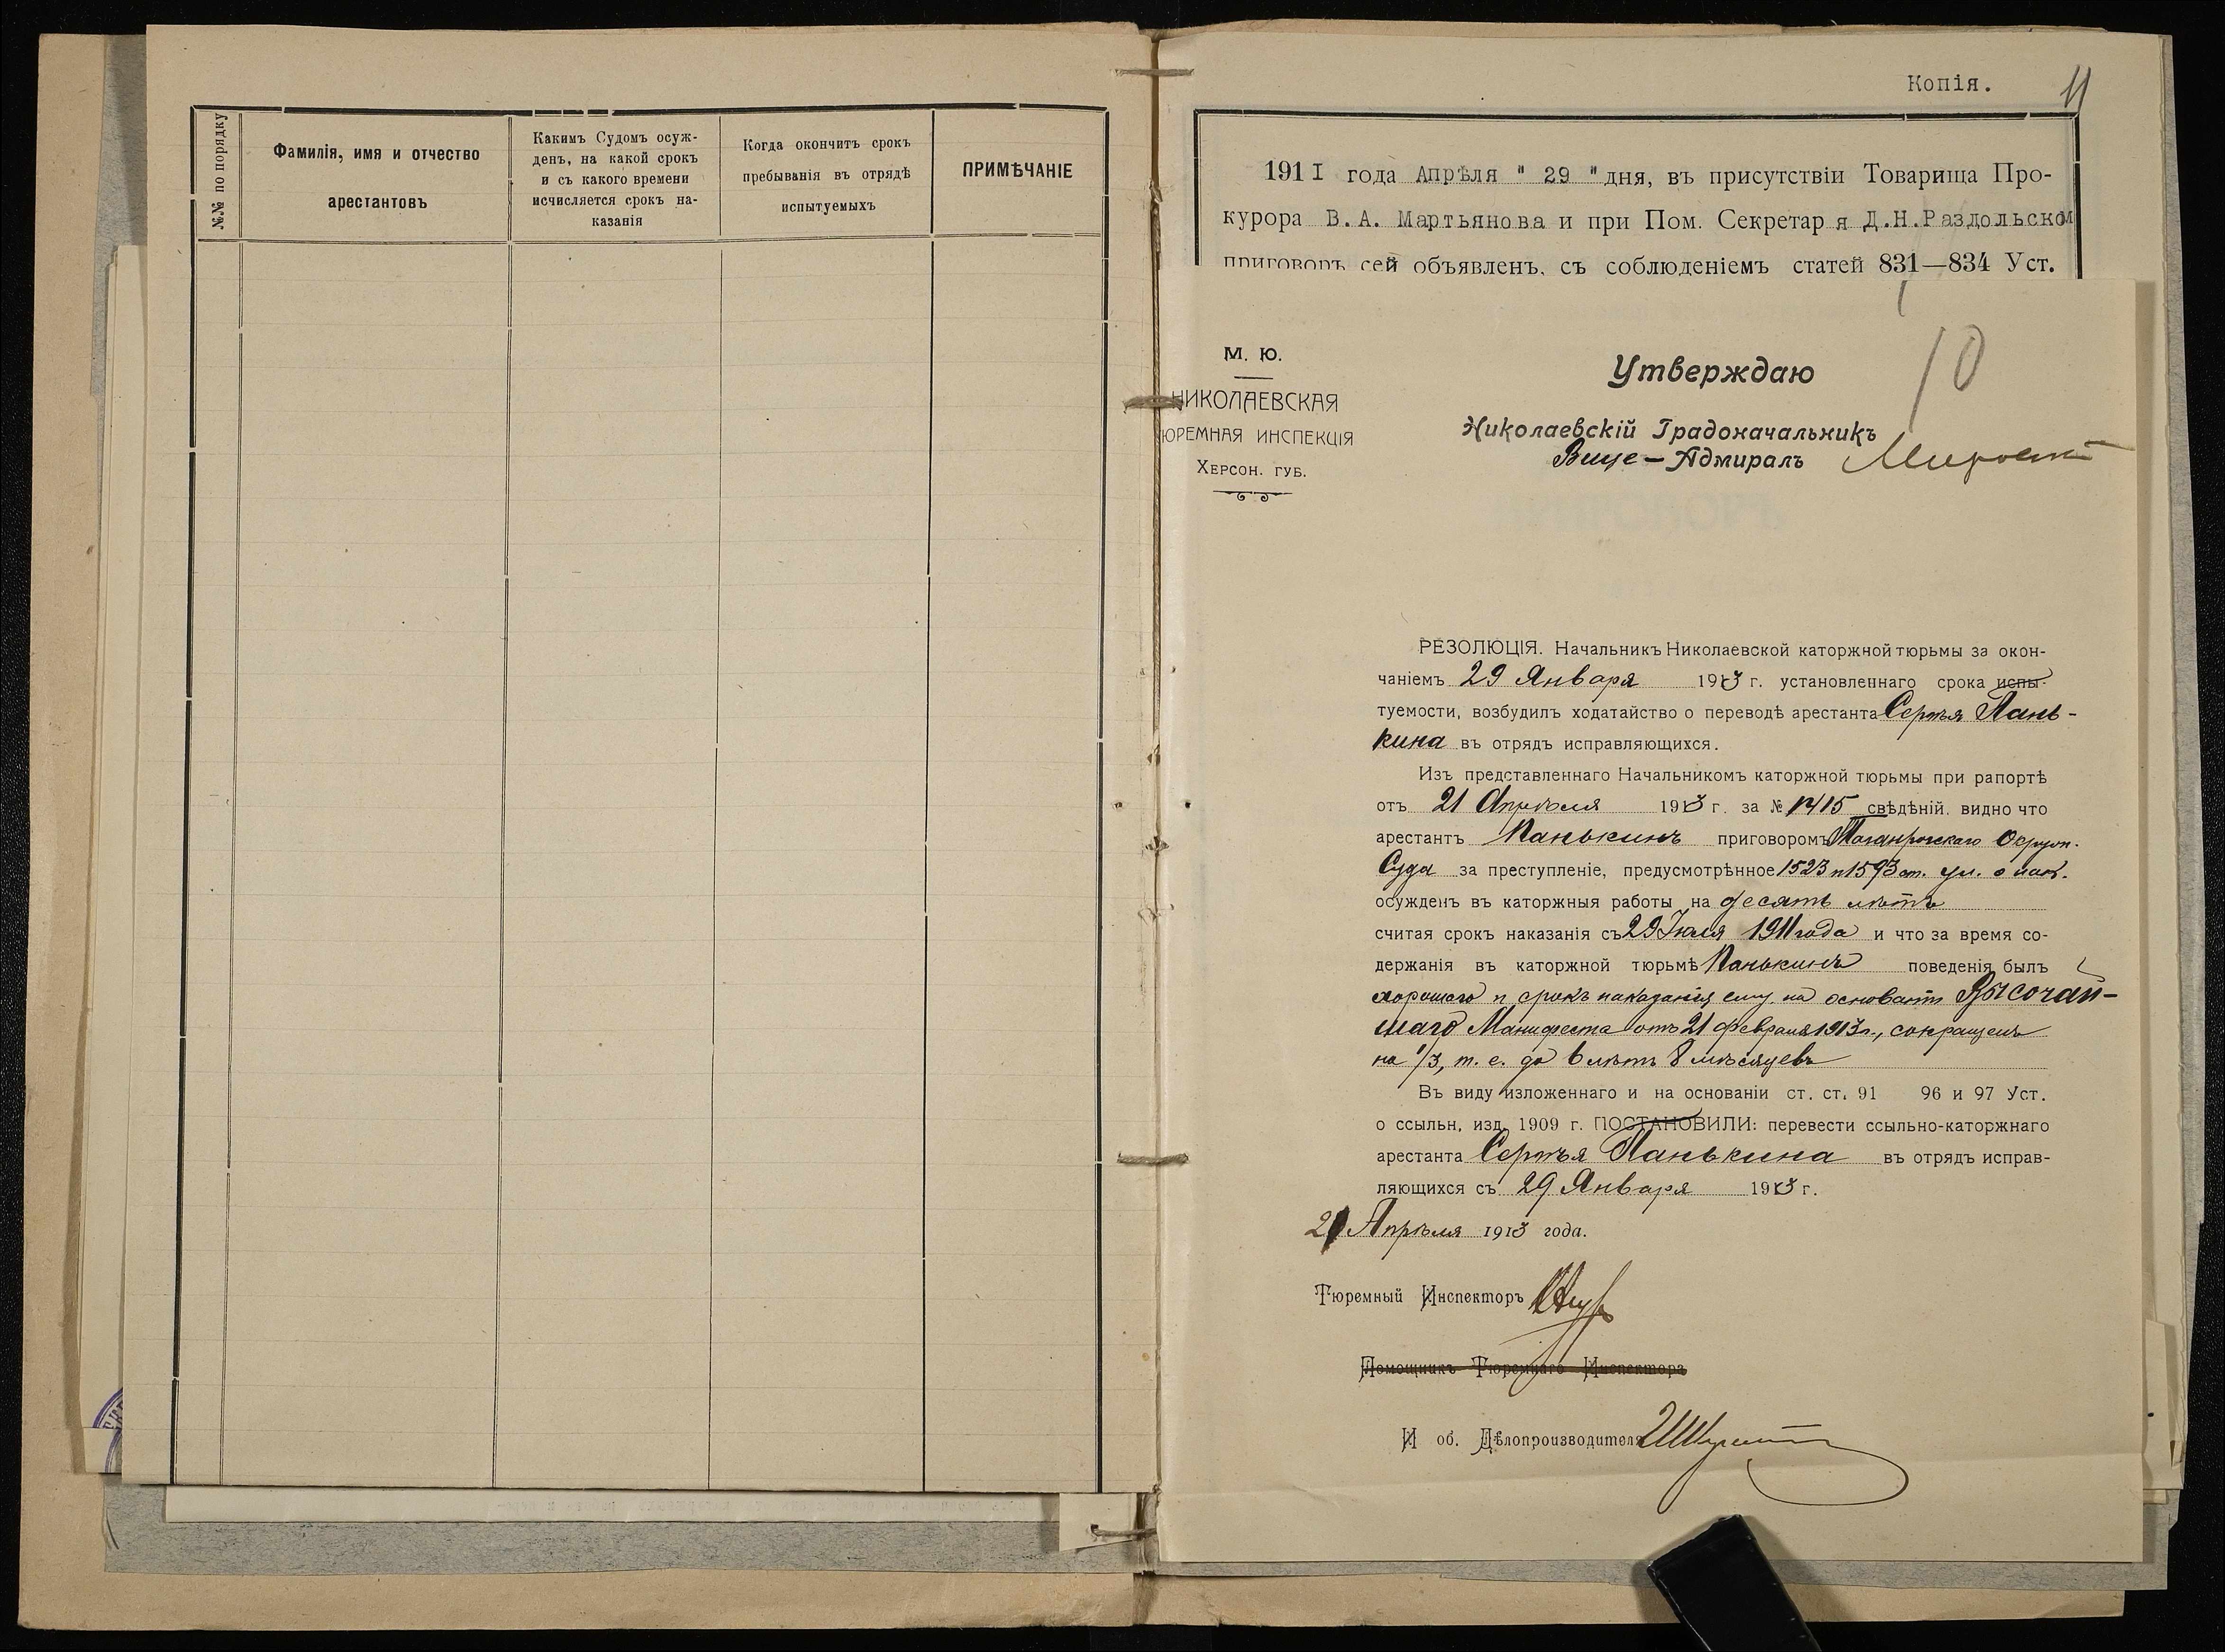 №№ по порядку
Фамилія, имя и отчество
арестантовъ
Какимъ Судомъ осуж-
денъ, на какой срокъ
и съ какого времени
исчисляется срокъ на-
казанія
Когда окончитъ срокъ
пребыванія въ отрядѣ
испытуемыхъ
ПРИМѢЧАНІЕ
Копія.
11
1911 года Апрѣля " 29 " дня, въ присутствіи Товарища Про-
курора В.А. Мартьянова и при Пом. Секретаря Д.Н.Раздольском
приговоръ сей объявленъ, съ соблюденіемъ статей 831—834 Уст.
10
М. Ю.
НИКОЛАЕВСКАЯ
ЮРЕМНАЯ ИНСПЕКЦІЯ
ХЕРСОН. ГУБ.
Утверждаю
Николаевскій Градоначальникъ
Вице-Адмиралъ
РЕЗОЛЮЦІЯ. Начальникъ Николаевской каторжной тюрьмы за окон-
чаніемъ 29 Января 1913 г. установленнаго срока испы-
туемости, возбудилъ ходатайство о переводѣ арестанта Сергѣя Пань-
кина въ отрядъ исправляющихся.
Изъ представленнаго Начальникомъ каторжной тюрьмы при рапортѣ
отъ 21 Апрѣля 1913 г. за № 1415 свѣдѣній, видно что
арестантъ Панькинъ приговоромъ Таганрогскаго Окружн.
Суда за преступленіе, предусмотрѣнное 1523 и 1593 ст. ул. о нак.
осужденъ въ каторжныя работы на десять лѣтъ
считая срокъ наказанія съ 29 Іюля 1911 года и что за время со-
держанія въ каторжной тюрьмѣ Панькинъ поведенія былъ
хорошаго и срокъ наказанія ему на основаніи Высочай-
шаго Манифеста отъ 21 февраля 1913 г., сокращенъ
на 1/3, т. е. до 6 лѣтъ 8 мѣсяцевъ
Въ виду изложеннаго и на основаніи ст. ст. 91 96 и 97 Уст.
о ссыльн, изд. 1909 г. ПОСТАНОВИЛИ: перевести ссыльно-каторжнаго
арестанта Сергѣя Панькина въ отрядъ исправ-
ляющихся съ 29 Января 1913 г.
21 Апрѣля 1913 года.
Тюремный Инспекторъ
Помощникъ Тюремнаго Инспектора
И об. Дѣлопроизводителя